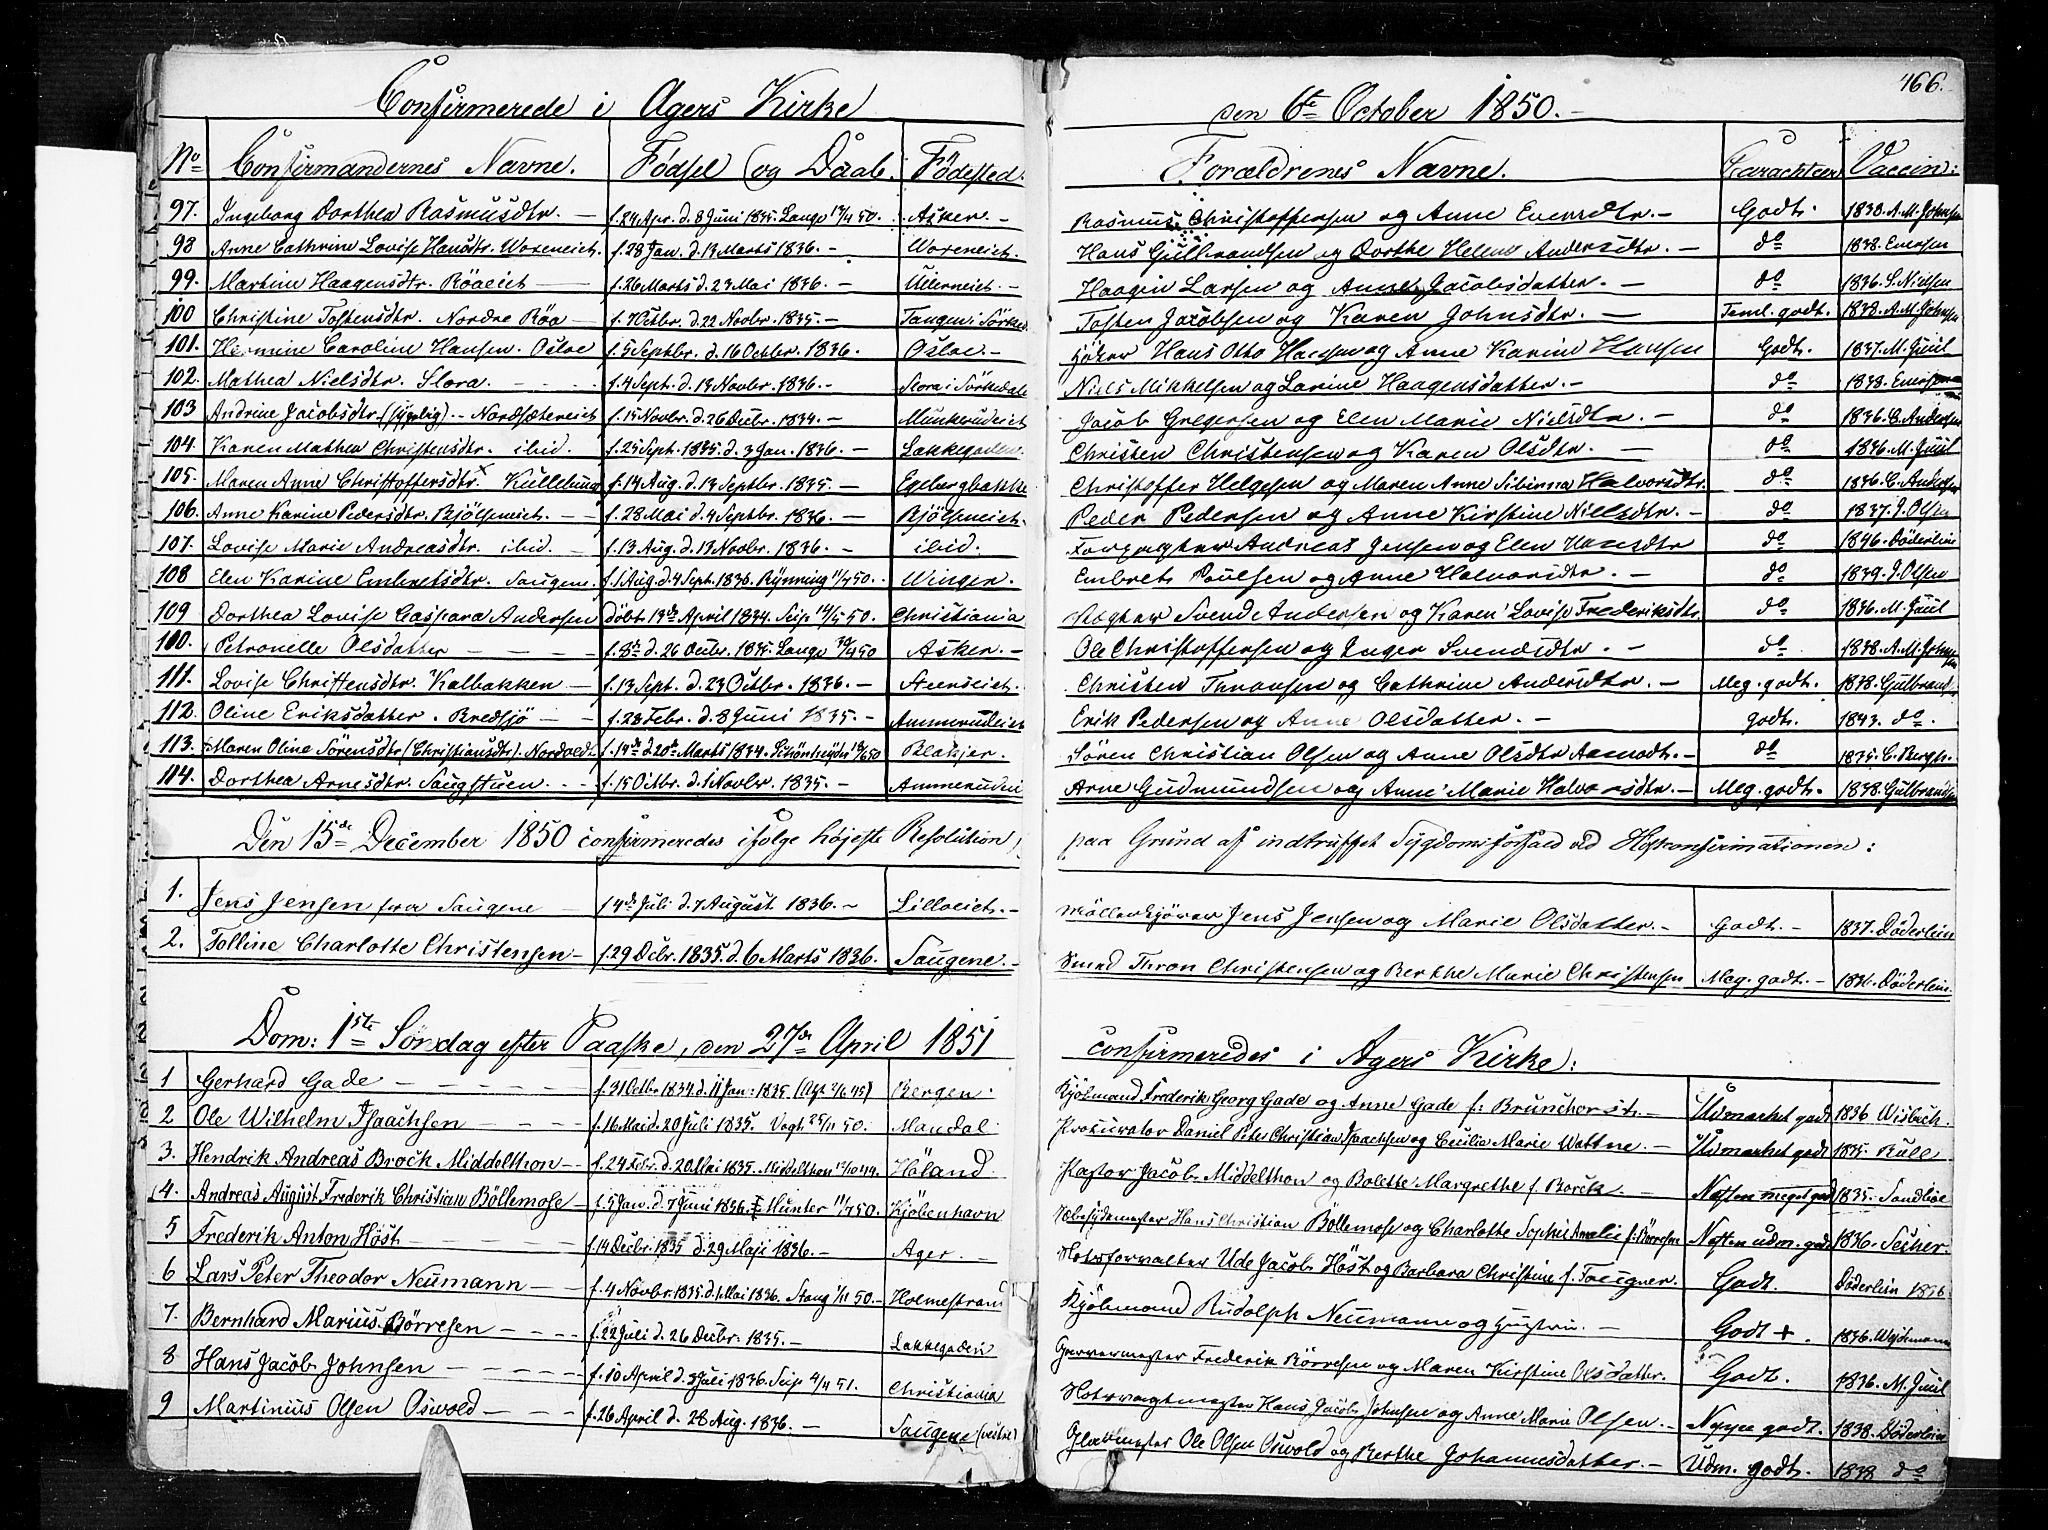 466.
Confirmerede i Agers Kirke den 6te October 1850.-
No Confirmandernes Navne. Födsel og Daab. Födested. Forældrenes Navne. Carachteer Vaccin:
97. Ingeborg Dorthea Rasmusdtr. f. 24 Apr. d. 8 Juni 1835. Lange Asker.- Rasmus Christoffersen og Anne Evensdtr.- Godt. 1838. A. M. Johnsen
98 Anne Cathrine Lovise Hansdtr. Woxeneiet. f. 28 Jan. d. 13 Marts 1836.- Woxeneiet. Hans Gulbrandsen og Dorthe Helene Andersdtr.- do 1838. Evensen
99. Martine Haagensdtr. Röaeiet f. 26 Marts d. 23 Mai 1836.- Ullerneiet.- Haagen Larsen og Anne Jacobsdatter.- do 1836. S. Nielsen
100 Christine Tostensdtr. Nordre Röa f. 7 Octbr. d. 22 Novbr. 1835.- Tangen i Sörked. Tosten Jacobsen og Karen Johnsdtr.- Teml. godt. 1838. A. M. Johnsen
101. Hermine Caroline Hansen. Osloe f. 5 Septbr. d. 16 Octbr. 1836. Osloe.- Höker Hans Otto Hansen og Anne Karine Hansen Godt. 1837. M. Juul
102. Mathea Nielsdtr. Slora. f. 4 Sept. d. 13 Novbr. 1836.- Slora i Sörkedal Niels Mikkelsen og Larine Haagensdatter.- do 1838. Evensen
103 Andrine Jacobsdtr (sygelig).- Nordsætereiet f. 15 Novbr. d. 26 Decbr. 1834.- Munkerudeiet Jacob Gregersen og Elen Marie Nielsdtr.- do 1836. C. Andersen
104. Karen Mathea Christensdtr. ibid. f. 25 Sept. 1835. d. 3 Jan. 1836.- Lakkegaden. Christen Christensen og Karen Olsdtr. do 1836. M. Juul
105. Maren Anne Christoffersdtr. Kullebund f. 14 Aug. d. 13 Septbr. 1835.- Egebergbakke Christoffer Helgesen og Maren Anne Sibinna Halvorsdtr. do 1836. C. Andersen
106. Anne Karine Pedersdtr. Bjölseneiet. f. 28 Mai d. 4 Septbr. 1836.- Bjölseneiet. Peder Pedersen og Anne Kirstine Nielsdtr.- do 1837. J. Olsen
107. Lovise Marie Andreasdtr. ibid. f. 13 Aug. d. 13 Novbr. 1836.- ibid. Forpagter Andreas Jensen og Elen Hansdtr do 1846. Döderlein
108 Elen Karine Embretsdtr. Saugene. f. 1 Aug. d. 4 Sept. 1836. Rynning 11/4 50. Winger. Embret Poulsen og Anne Halvorsdtr.- do 1839. J. Olsen
109 Dorthea Lovise Caspara Andersen döbt 13de April 1834. Seip Christiania Svend Andersen og Karen Lovise Frederiksdtr. do 1836. M. Juul
100. Petronelle Olsdatter f. 8de d. 26 Decbr. 1835. Lange Asker.- Ole Christoffersen og Inger Svendsdtr.- do 1838. A. M. Johnsen
111. Lovise Christensdtr. Kalbakken f. 13 Sept. d. 23 Octbr. 1836.- Steenseiet. Christen Thronsen og Cathrine Andersdtr.- Meg. godt. 1838. Gulbrands.
112. Oline Eriksdatter. Bredsjö f. 28 Febr. d. 8 Juni 1835.- Ammerudeiet Erik Pedersen og Anne Olsdatter.- godt. 1843. do.
113. Maren Oline Sörensdtr (Christiansdtr). f. 14de d. 20de Marts 1834. Blakjer. Sören Christian Olsen og Anne Olsdtr Aamodt.- do 1835. C. Bergh.
114. Dorthea Arnesdtr. Saugstuen. f. 15 Octbr. d. 1 Novbr. 1835.- Ammerudei Arne Gudmundsen og Anne Marie Halvorsdtr.- Meg. godt. 1838. Gulbrandsen
Den 15de December 1850 confirmeredes ifölge höjeste Resolution, paa Grund af indtruffet Sygdomsforfald ved Höstkonfirmationen:
1. Jens Jensen fra Saugene 14de Juli d. 7 August 1836.- Lilloeiet.- Möllerkjörer Jens Jensen og Marie Olsdatter.- Godt.- 1837. Döderlein
2. Tolline Charlotte Christensen f. 29 Dcbr. 1835. d. 6 Marts 1836. Saugene.- Smed Thron Christensen og Berthe Marie Christensen Meg. godt.- 1836. Döderlein.
Dom: 1ste Söndag efter Paaske, den 27de April 1851 confirmeredes i Agers Kirke:
1 Gerhard Gade f. 31 Octbr 1834. d. 11 Jan: 1835 Bergen. Kjöbmand Frederik Georg Gade og Anne Gade f: Brunchorst.- Udmærket godt 1836 Wisbech.
2 Ole Wilhelm Isaachsen f. 16 Mai d. 20 Juli 1835. Vogt 25/11 50. Mandal. Prokurator Daniel Peter Christian Isaachsen og Cecilia Marie Wattne.- Udmærket godt 1835. Kull
3. Hendrik Andreas Brock Middelthon f. 24 Febr. d. 20 Mai 1835. Middelthon Höland. Pastor Jacob Middelthon og Bolette Margrethe f. Borck.- Næsten meget godt 1835. Sandboe
4. Andreas August Frederik Christian Böllemose f. 5 Jan. d. 7 Juni 1836. Münter 11/7 50. Kjöbenhavn Hans Christian Böllemose og Charlotte Sophie Amalie f. Börresen Næsten udm. godt 1836. Secher.
5 Frederik Anton Höst f. 14 Decbr. 1835 d. 29 Maji 1836.- Ager.- Ude Jacob Höst og Barbara Christine f. Faugner. Godt. Döderlein 1836
6 Lars Peter Theodor Neumann f. 4 Novbr. 1835. d. 1 Mai 1836. Stang 1/11 50.- Holmestrand Kjöbmand Rudolph Neumann og Hustru.- Godt +. 1836. Weidemann
7. Bernhard Marius Börresen f. 22 Juli d. 26 Decbr: 1835.- Lakkegaden Garvermester Frederik Börresen og Maren Kirstine Olsdatter. Godt. 1836. M. Juul
8 Hans Jacob Johnsen f. 10 April d. 3 Juli 1836. Seip 4/4 51. Christiania Hans Jacob Johnsen og Anne Marie Olsen.- Neppe godt. 1838. Döderlein
9 Martinius Olsen Oswold f. 26 April d. 28 Aug. 1836.- Saugene (vestre) Ole Olsen Oswold og Berthe Johannesdatter.- Udm. godt. 1838 do